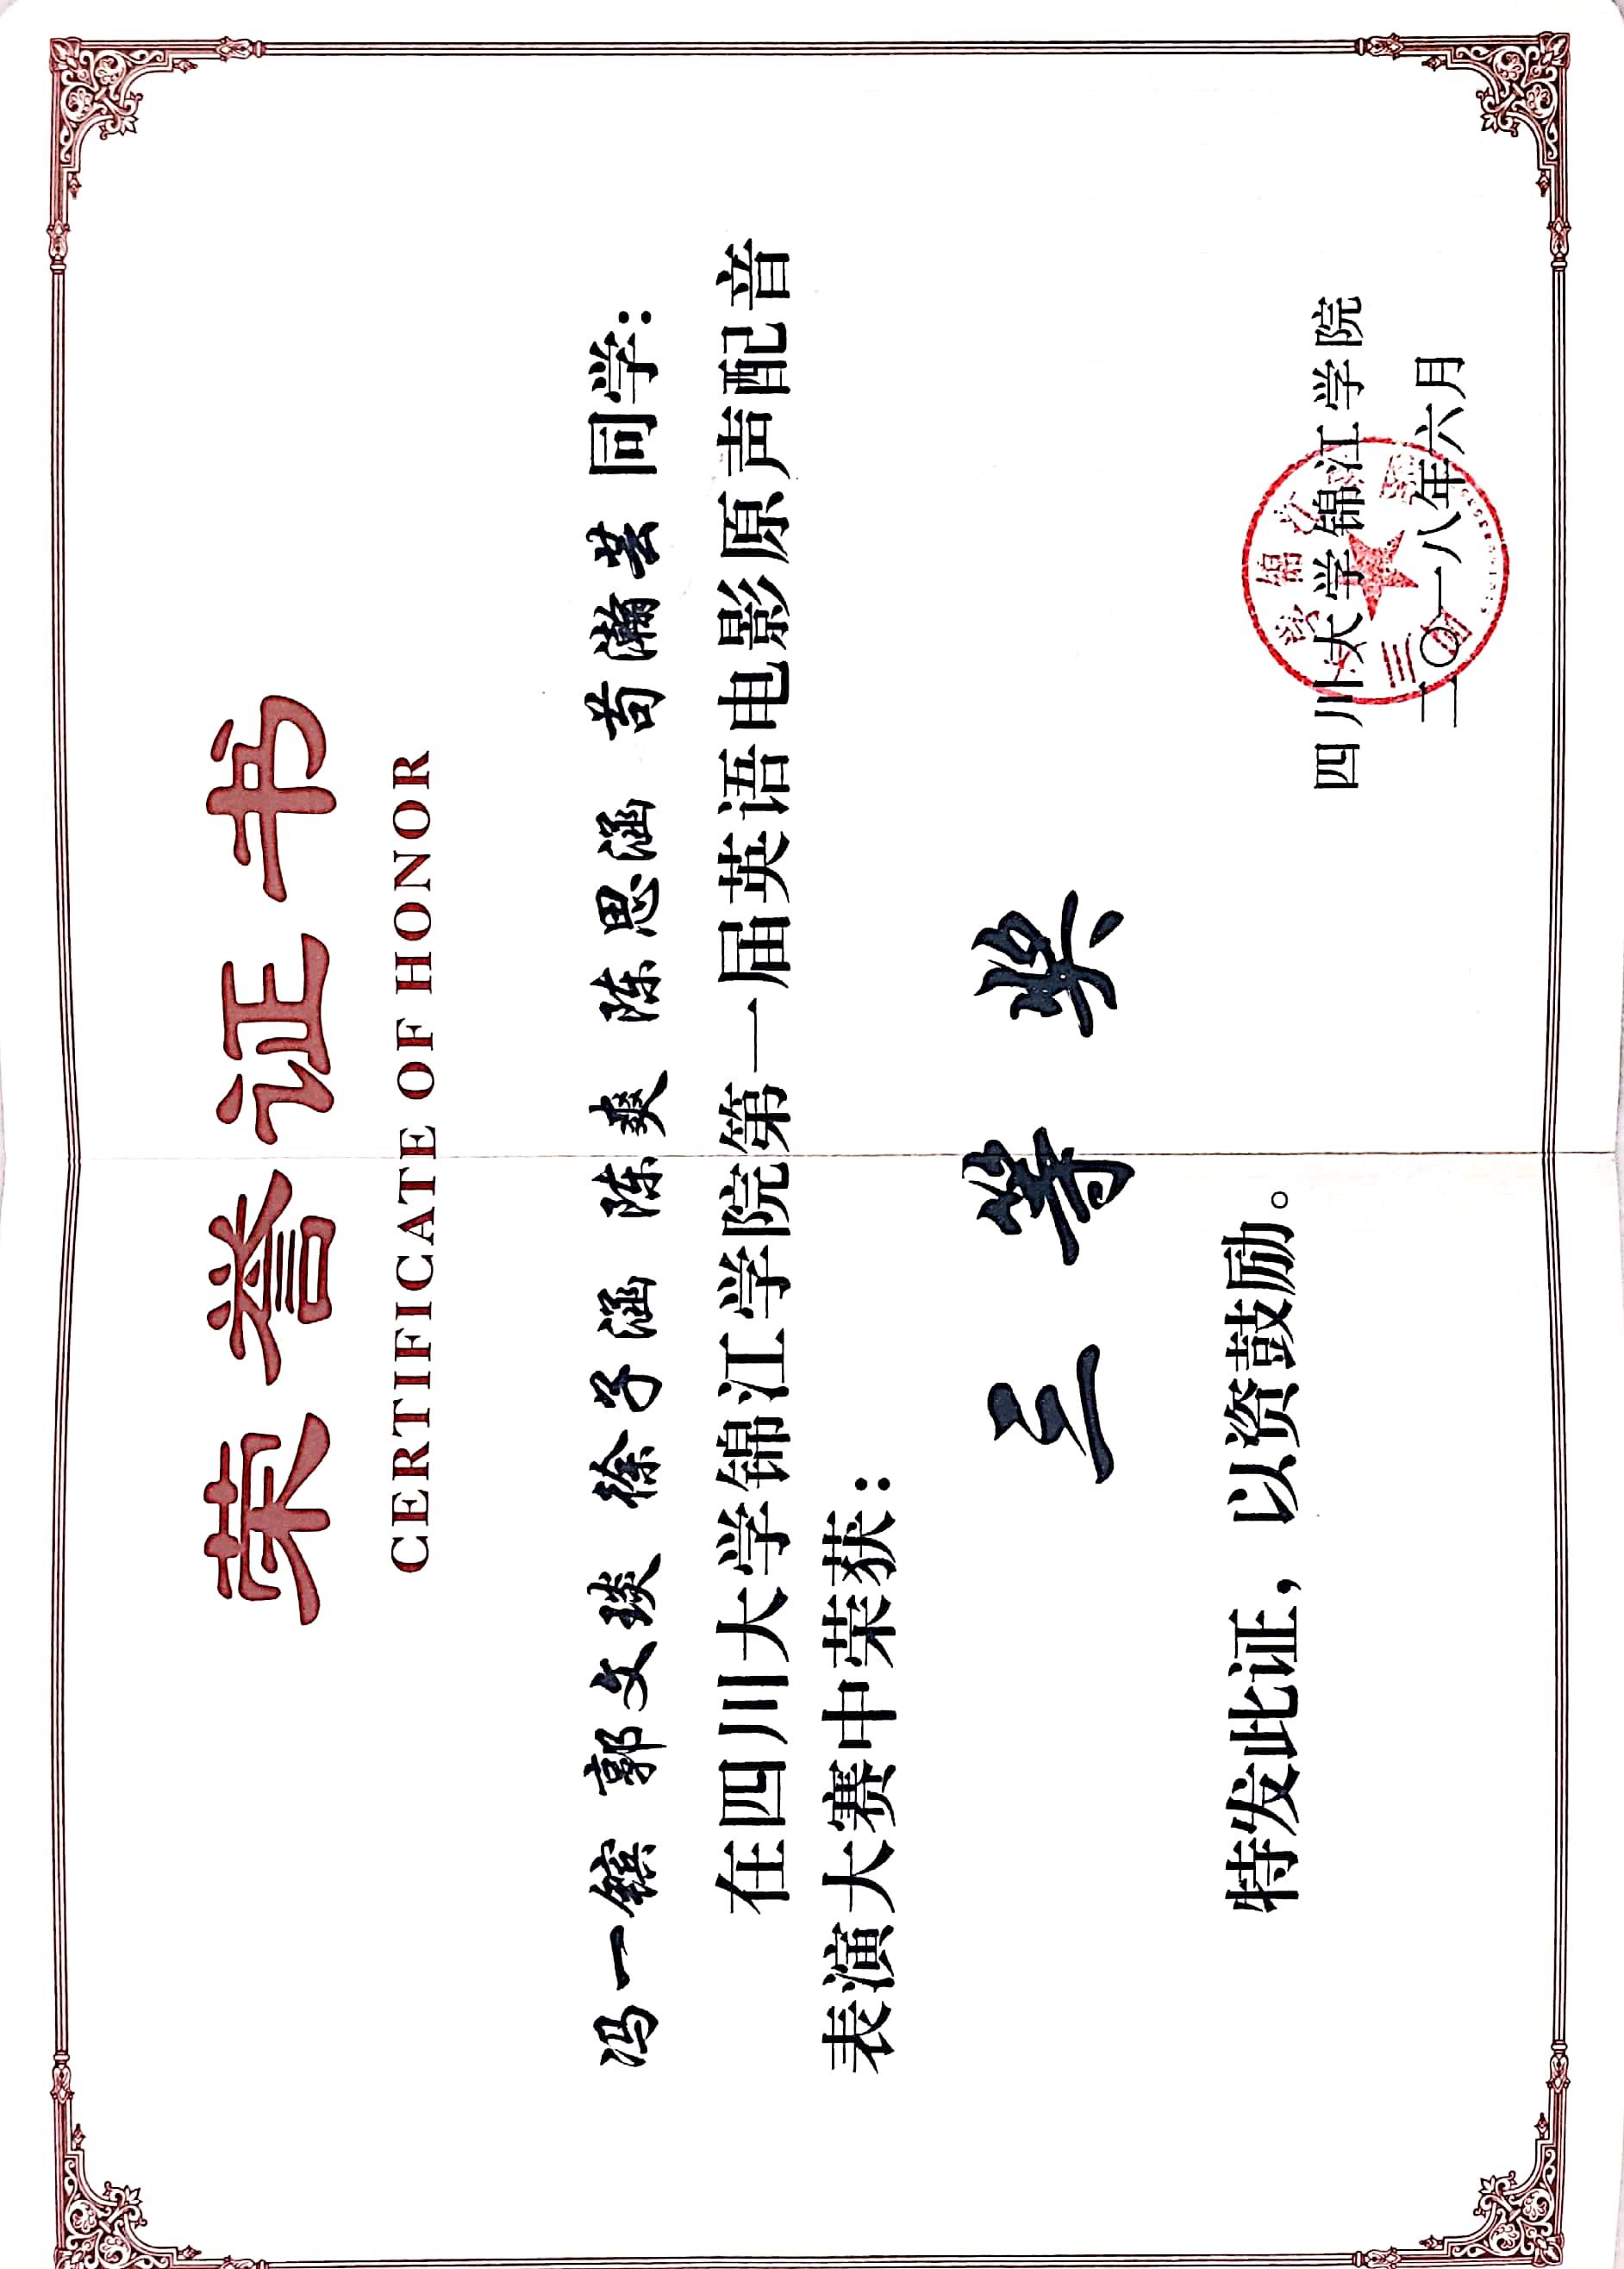 荣誉证书
CERTIFICATE OF HONOR
冯一镔 郭文瑛 徐子涵 陈爽 陈思涵 苟瀚芸 同学：
在四川大学锦江学院第一届英语电影原声配音
表演大赛中荣获：
三等奖
特发此证，以资鼓励。
四川大学锦江学院
二〇一八年六月